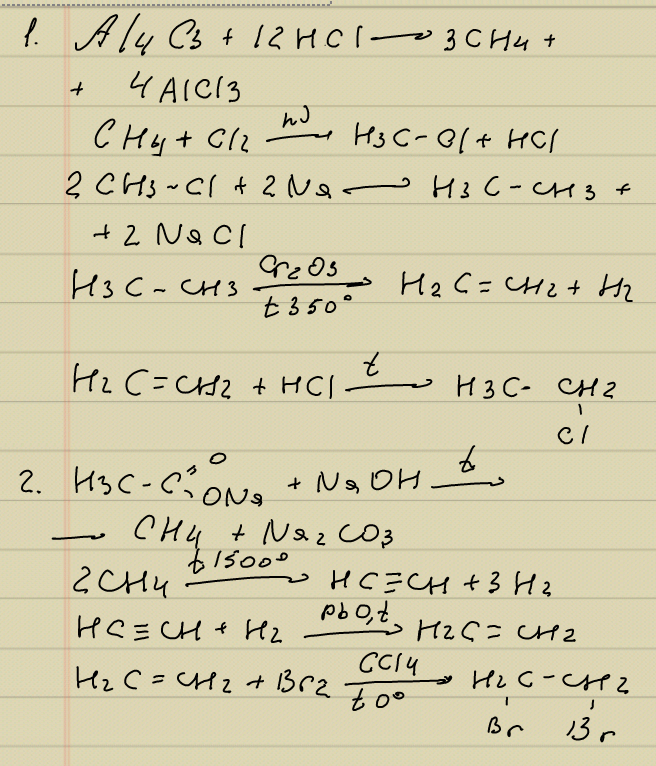 1. Al4C3 + 12HCl → 3CH4 +
+ 4AlCl3
CH4 + Cl2 —hν→ H3C-Cl + HCl
2CH3-Cl + 2Na → H3C-CH3 +
+ 2NaCl
H3C-CH3 —Cr2O3, t 350°→ H2C=CH2 + H2
H2C=CH2 + HCl —t→ H3C-CH2
Cl
2. H3C-C=O ONa + NaOH —t→
→ CH4 + Na2CO3
2CH4 —t 1500°→ HC≡CH + 3H2
HC≡CH + H2 —PbO,t→ H2C=CH2
H2C=CH2 + Br2 —CCl4, t 0°→ H2C-CH2
Br Br